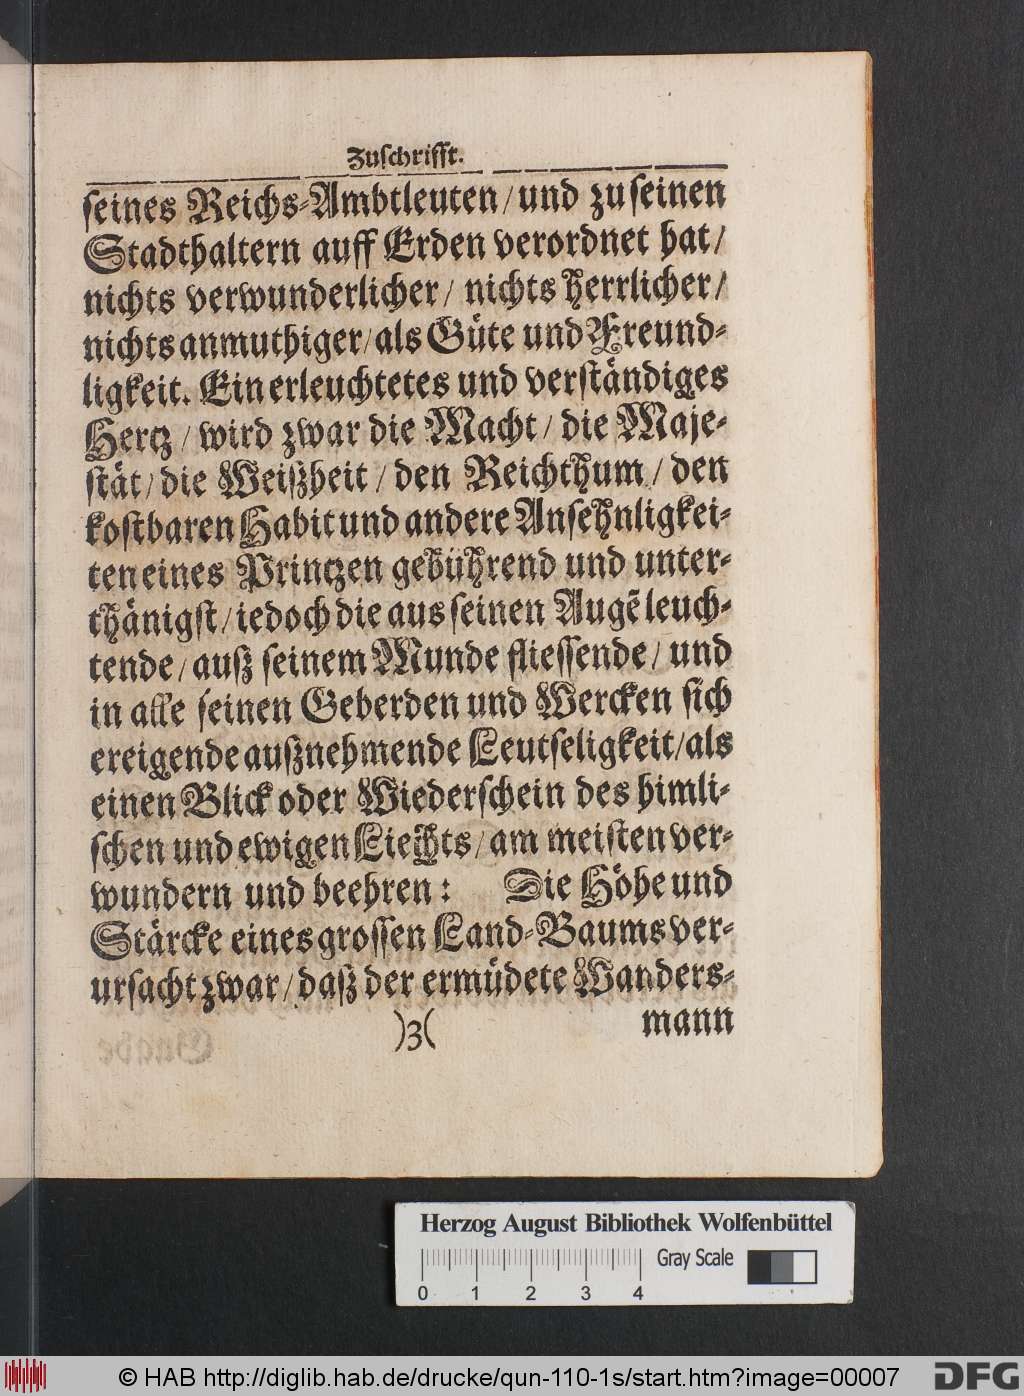 Zuschrifft.
seines Reichs-Ambtleuten/und zu seinen
Stadthaltern auff Erden verordnet hat/
nichts verwunderlicher/ nichts herrlicher/
nichts anmuthiger/als Güte und Freund-
ligkeit. Ein erleuchtetes und verständiges
Hertz/ wird zwar die Macht/ die Maje-
stät/die Weißheit/ den Reichthum/ den
kostbaren Habit und andere Ansehnligkei-
ten eines Printzen gebührend und unter-
thänigst/iedoch die aus seinen Augẽ leuch-
tende/auß seinem Munde fliessende/ und
in alle seinen Geberden und Wercken sich
ereigende außnehmende Leutseligkeit/als
einen Blick oder Wiederschein des himli-
schen und ewigen Liechts/am meisten ver-
wundern und beehren: Die Höhe und
Stärcke eines grossen Land-Baums ver-
ursacht zwar/daß der ermüdete Wanders-
)3( mann
Herzog August Bibliothek Wolfenbüttel
Gray Scale
0 1 2 3 4
© HAB http://diglib.hab.de/drucke/qun-110-1s/start.htm?image=00007
DFG